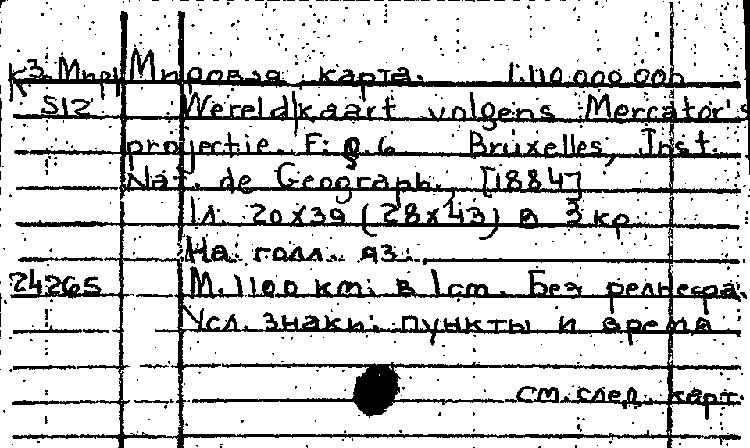 к3.Мир Мировая карта. 1:110.000.000
S12 Wereldkaart volgens Mercator's
projectie. F: Q.6 Bruxelles, Inst.
Nat. de Geograph., [1884]
1л. 20х39 (28х43) в 3 кр
На голл. яз.
24265 М. 1100 км. в 1см. Без рельефа.
Усл. знаки: пункты и время
см. след. карт.